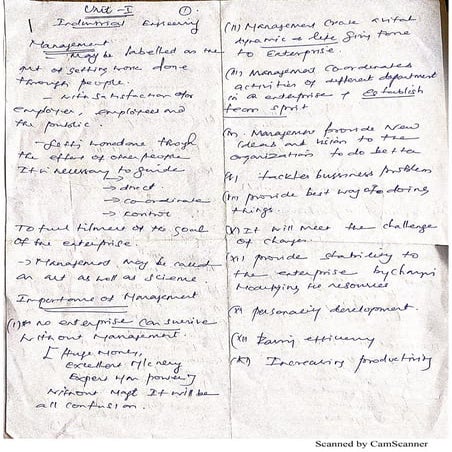 Unit - I
①.
Industrial Engineering
Management
May be labelled as the
art of getting work done
through people.
with satisfaction for
employer, employees and
the public
- Gets work done though
the effort of other people
It is necessary to guide
→ direct
→ co-ordinate
→ control
To fulfilment of the goal
of the enterprise.
→ Management may be called
an art as well as science.
Importance of Management
(1) no enterprise can survive
without Management.
[ Huge Money,
Excellent M/cnery
Expert Man power]
without Mgt It will be
all confusion.
(II) Management create a vital
dynamic & life giving force
to Enterprise.
(III) Management coordinates
activities of different department
in a enterprise & establish
team sprit
Management provide New
Ideas and vision to the
organization to do better
tackles bussiness problems
provide best way of doing
things.
It will meet the challenge
of change.
provide stability to
the enterprise by
the resources
personality development.
efficiency
Increasing productivity
Scanned by CamScanner